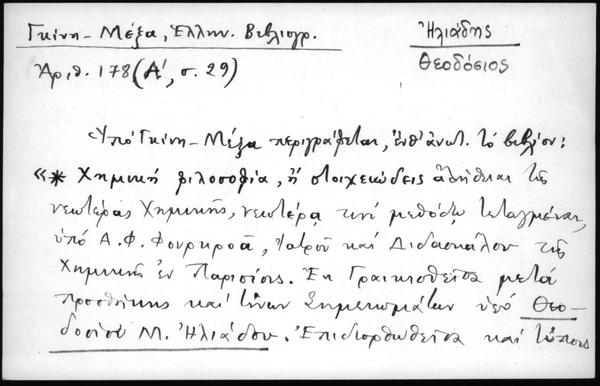 Γκίνη - Μέξα, Ἑλλην. Βιβλιογρ.
Ἠλιάδης
Ἀριθ. 178 (Α΄, σ. 29)
Θεοδόσιος
Ὑπὸ Γκίνη - Μέξα περιγράφεται, ἔνθ' ἀνωτ. τὸ βιβλίον:
«* Χημική φιλοσοφία, ἤ στοιχειώδεις ἀλήθειαι τῆς
νεωτέρας Χημικῆς, νεωτέρᾳ τινί μεθόδῳ τεταγμέναι,
ὑπὸ Α. Φ. Φουρκροᾶ, Ἰατροῦ καὶ Διδασκάλου τῆς
Χημικῆς ἐν Παρισίοις. Ἐκ Γραικισθεῖσα μετά
προσθήκης καὶ τινων Σημειωμάτων ὑπό Θεο-
δοσίου Μ. Ἠλιάδου. Ἐπιδιορθωθεῖσα καὶ τύποις